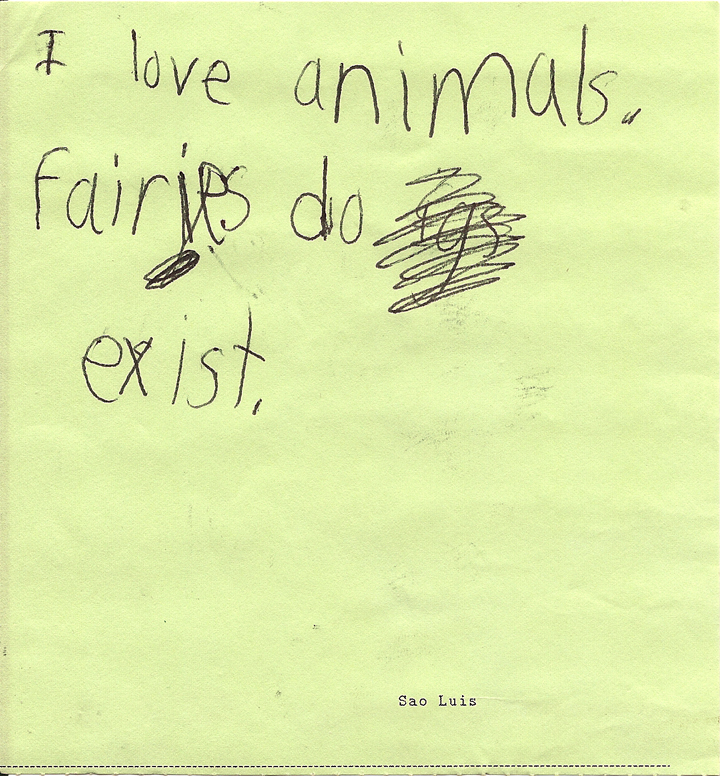 I love animals.
fairies do
exist.
Sao Luis